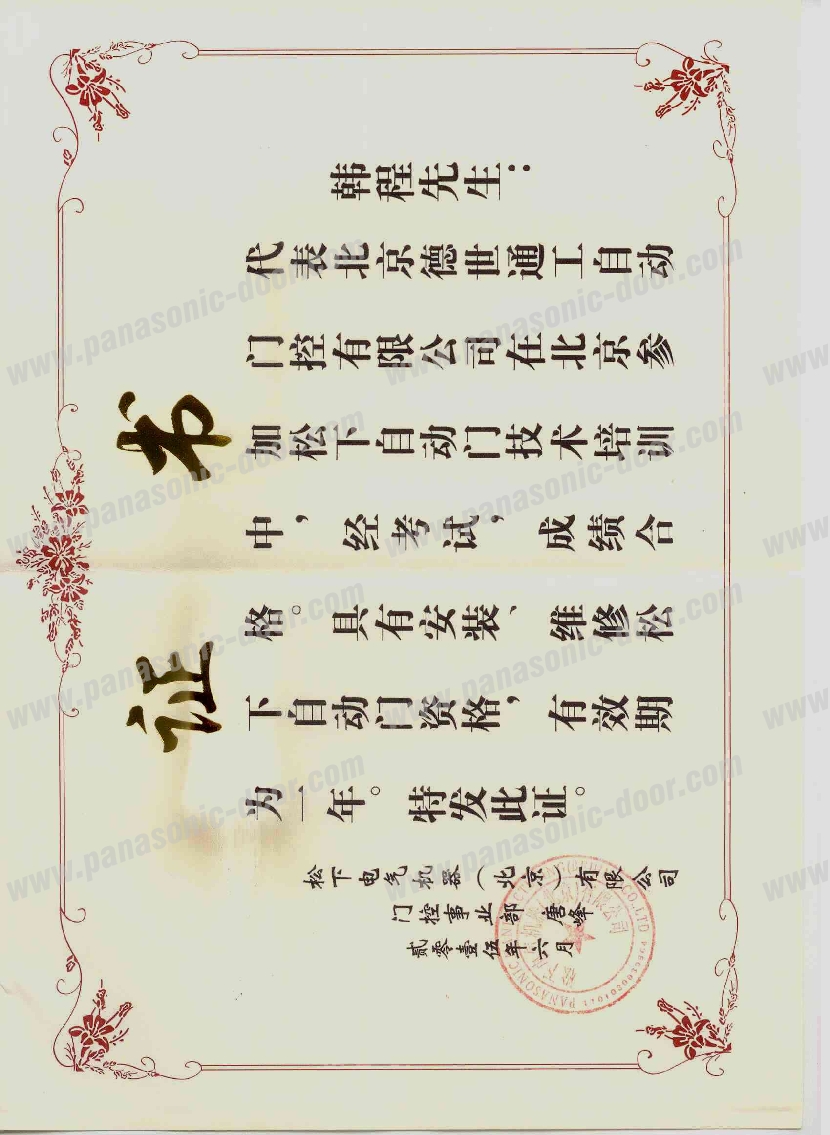 证书
韩程先生：
代表北京德世通工自动
门控有限公司在北京参
加松下自动门技术培训
中，经考试，成绩合
格。具有安装、维修松
下自动门资格，有效期
为一年。特发此证。
松下电气机器（北京）有限公司
门控事业部 唐峰
贰零壹伍年六月
www.panasonic-door.com